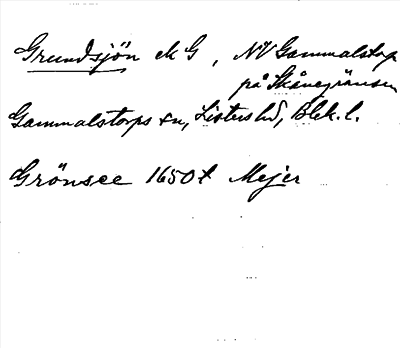 Grundsjön ek G, NV Gammalstorp
på Skånegränsen
Gammalstorps sn, Listers hd, Blek. l.
Grönsee 1650t Mejer